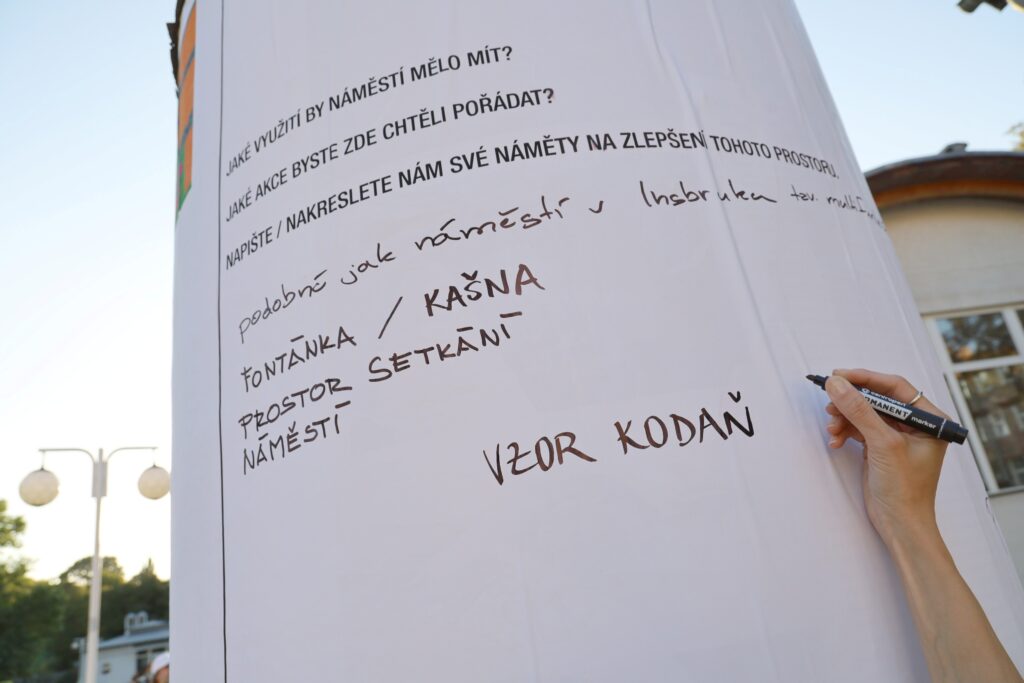 JAKÉ VYUŽITÍ BY NÁMĚSTÍ MĚLO MÍT?
JAKÉ AKCE BYSTE ZDE CHTĚLI POŘÁDAT?
NAPIŠTE / NAKRESLETE NÁM SVÉ NÁMĚTY NA ZLEPŠENÍ TOHOTO PROSTORU.
podobně jak náměstí v Insbruka tzv.
FONTÁNKA / KAŠNA
PROSTOR SETKÁNÍ
NÁMĚSTÍ
VZOR KODAŇ
centropen
PERMANENT
marker